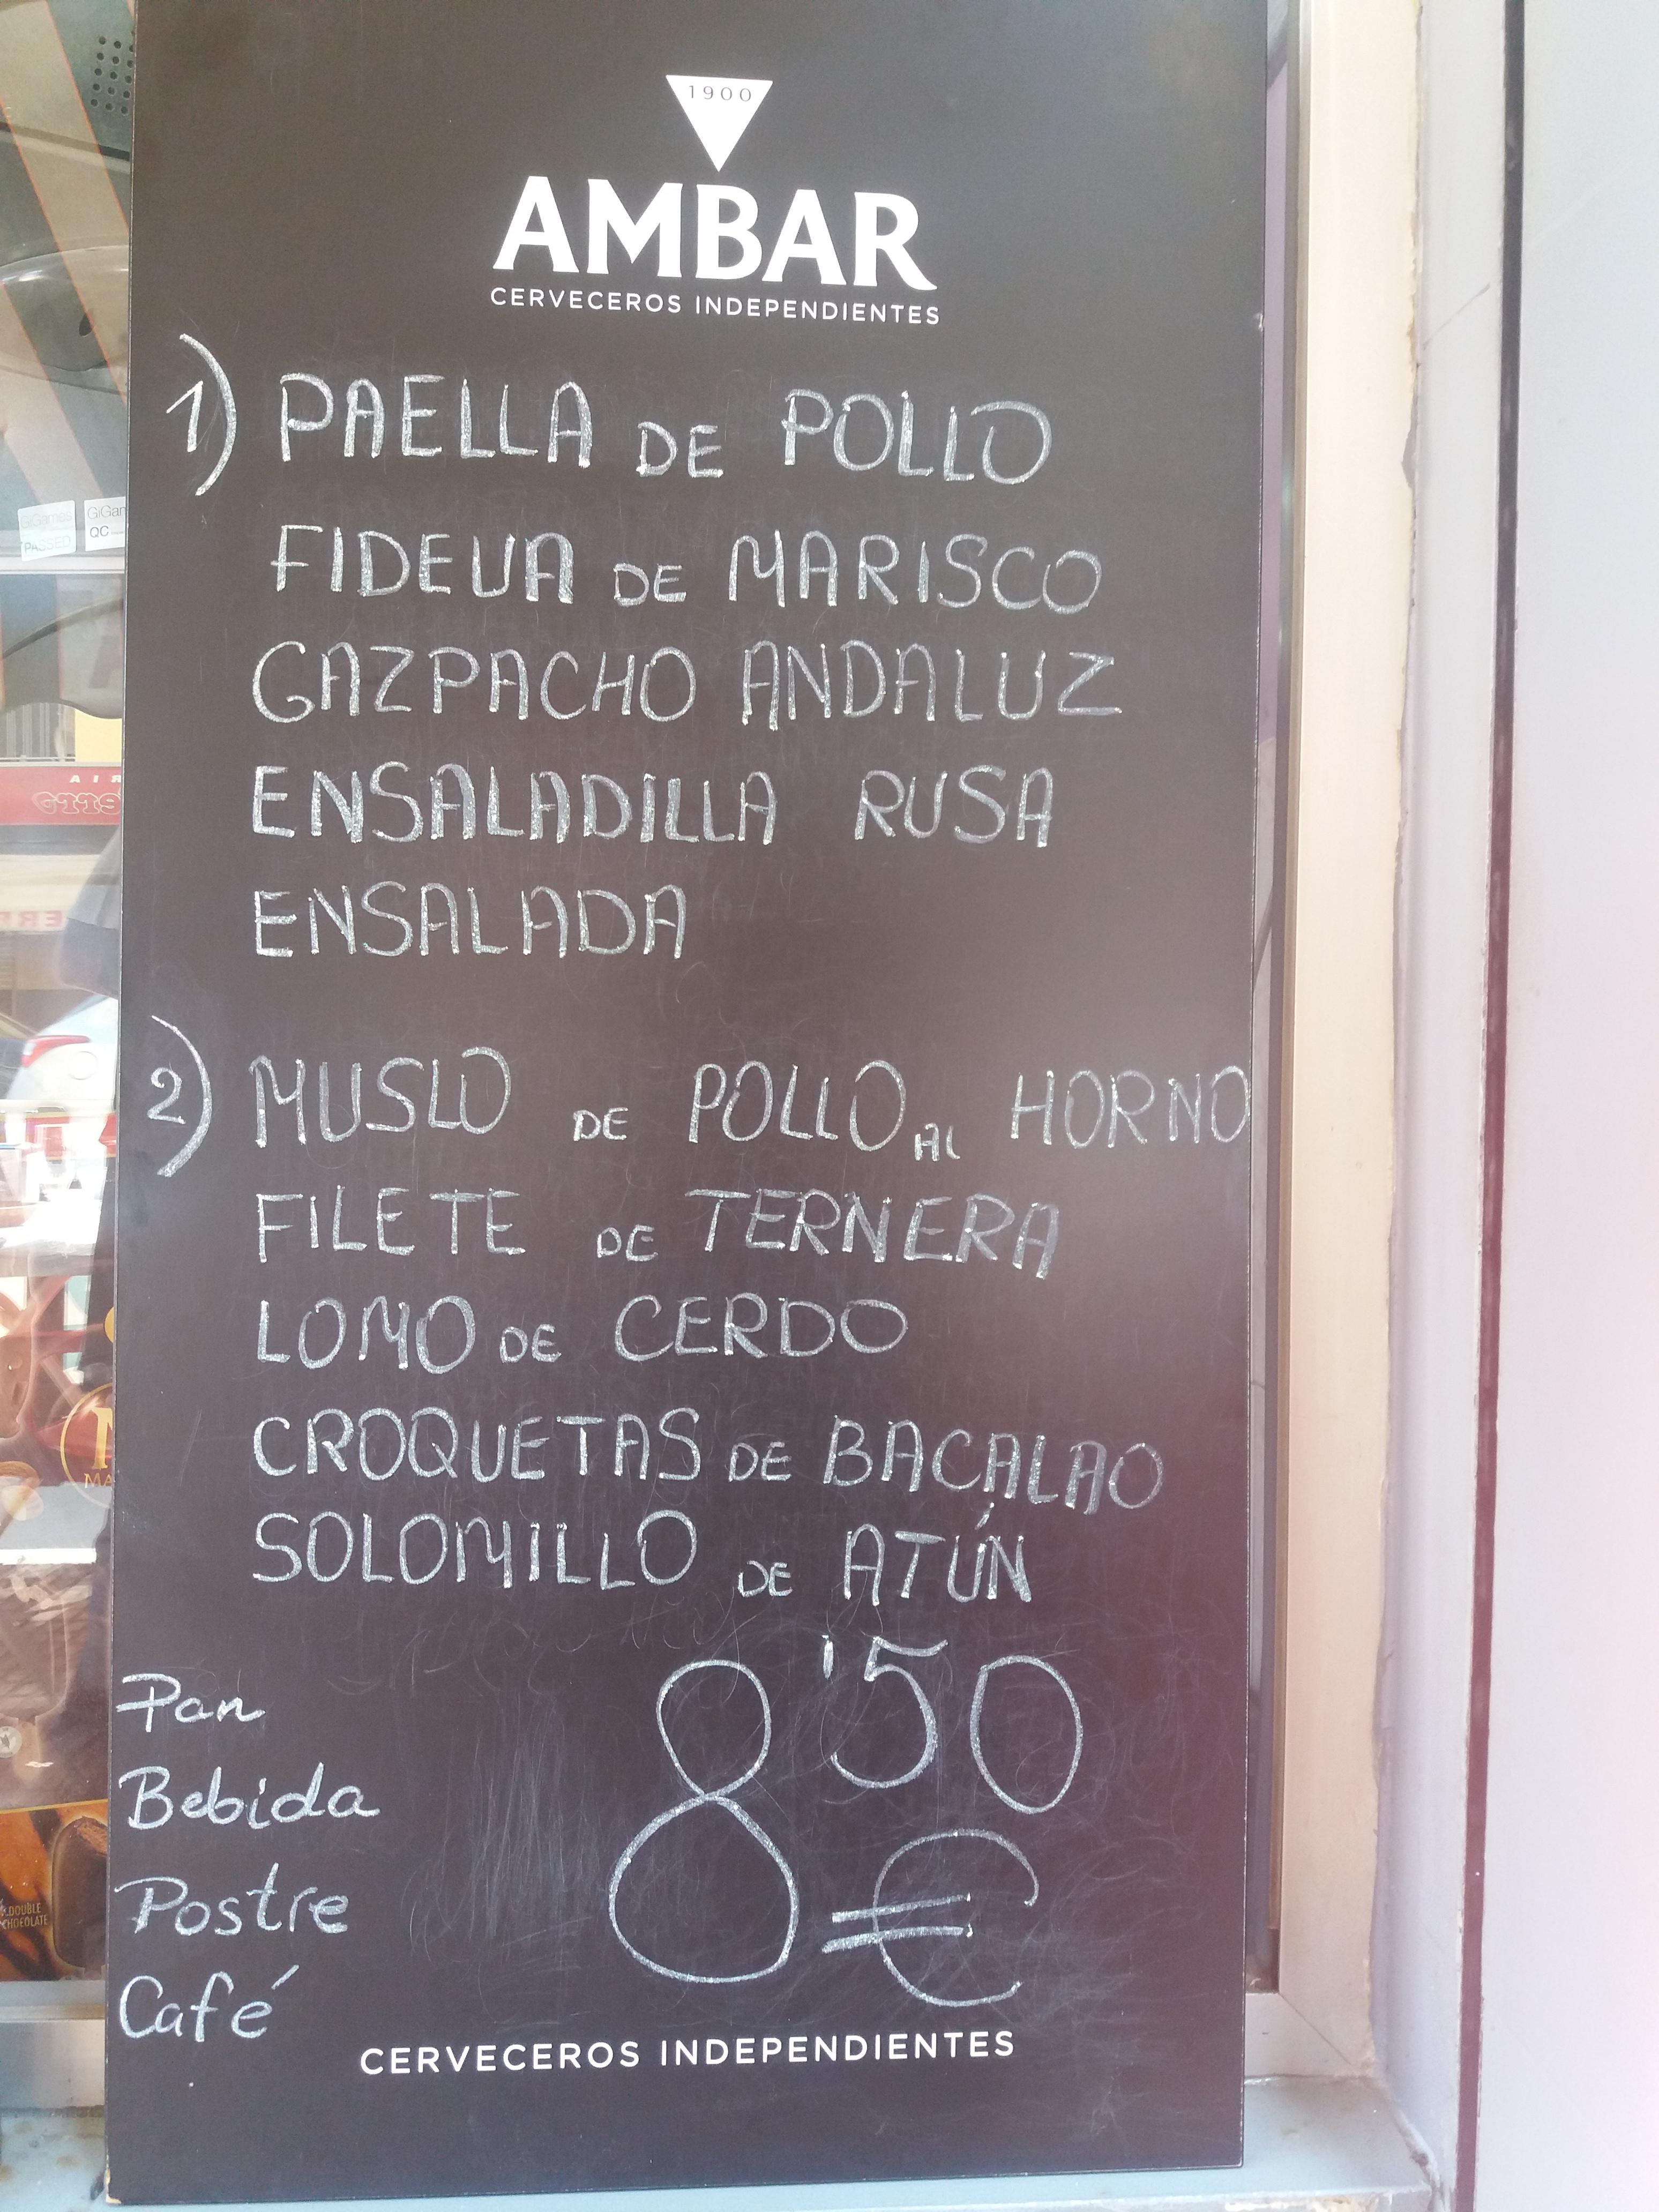 1900
AMBAR
CERVECEROS INDEPENDIENTES
1) PAELLA DE POLLO
FIDEUA DE MARISCO
GAZPACHO ANDALUZ
ENSALADILLA RUSA
ENSALADA
2) MUSLO DE POLLO AL HORNO
FILETE DE TERNERA
LOMO DE CERDO
CROQUETAS DE BACALAO
SOLOMILLO DE ATÚN
Pan
Bebida
Postre
Café
8'50 €
CERVECEROS INDEPENDIENTES
PASSED
QC
DOUBLE
CHOCOLATE